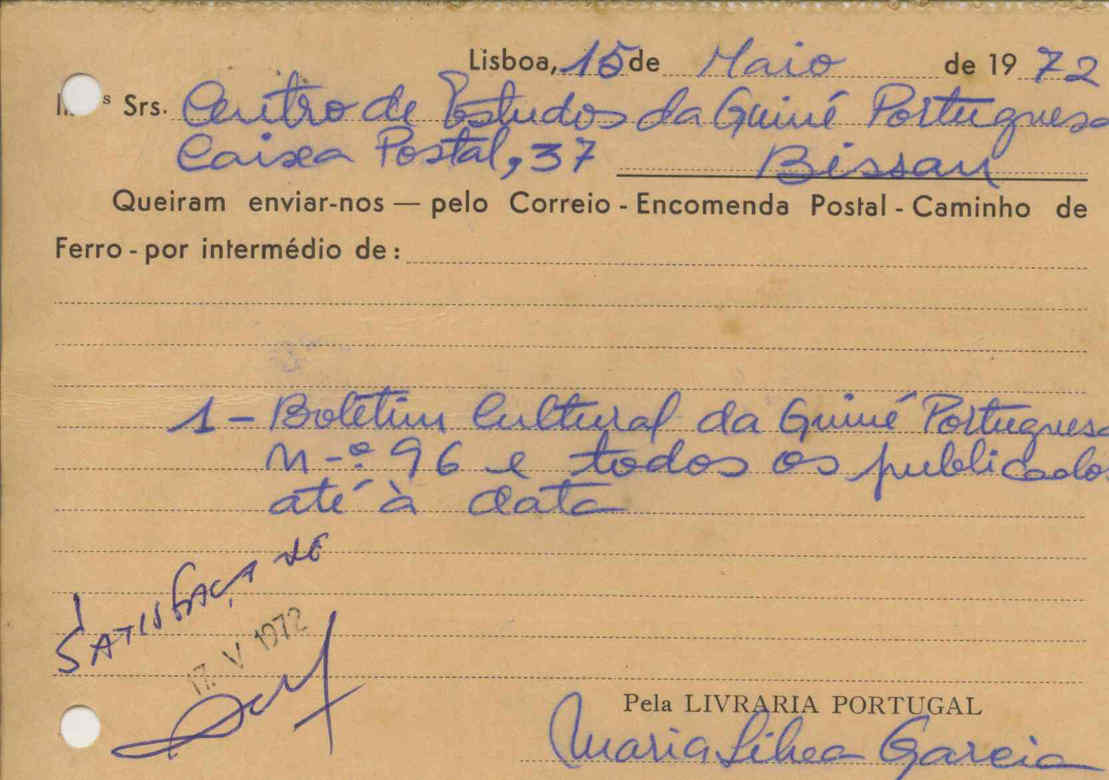 Lisboa, 15 de Maio de 1972
Srs. Centro de Estudos da Guiné Portuguesa
Caixa Postal, 37 Bissau
Queiram enviar-nos — pelo Correio - Encomenda Postal - Caminho de
Ferro - por intermédio de:
1 - Boletim Cultural da Guiné Portuguesa
n.º 96 e todos os publicados
até à data
SATISFAÇA SE
17. V 1972
Pela LIVRARIA PORTUGAL
Maria Garcia